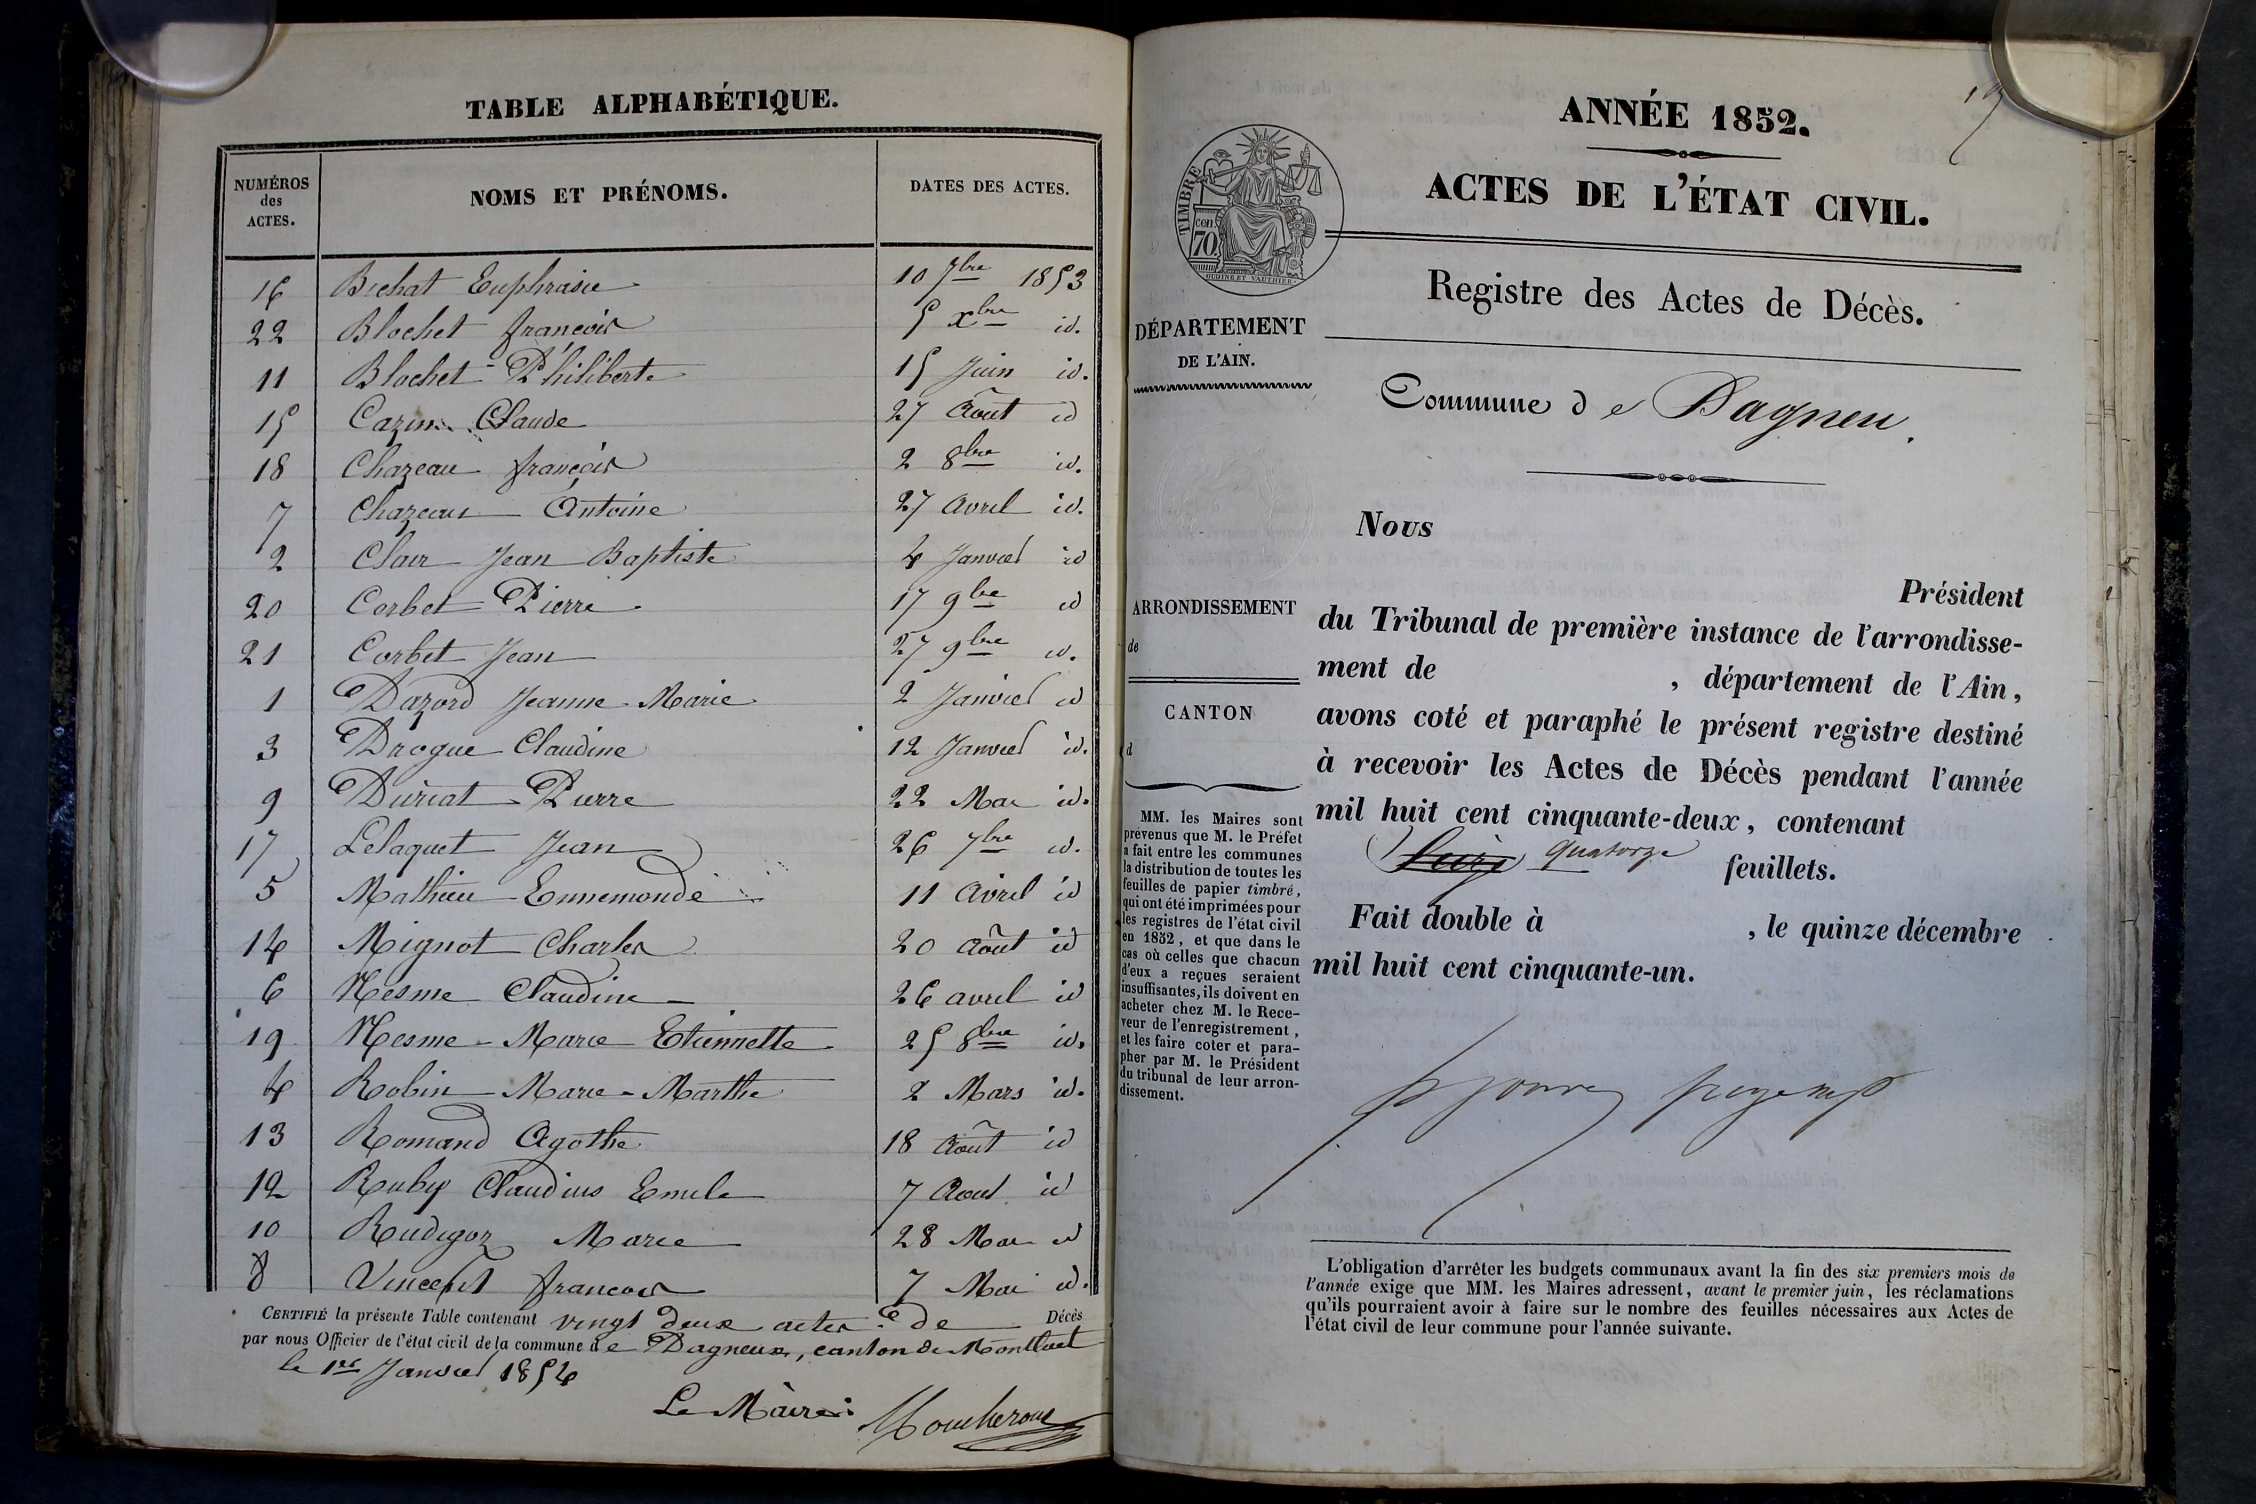 TABLE ALPHABÉTIQUE.
NUMÉROS
des
ACTES.
NOMS ET PRÉNOMS.
DATES DES ACTES.
16 Bichat Euphrasie 10 7bre 1853
22 Blochet françois 5 xbre id.
11 Blochet Philiberte 15 Juin id.
15 Cazin Claude 27 Août id
18 Chazeau françois 2 8bre id.
7 Chazeau Antoine 27 Avril id.
2 Clair Jean Baptiste 4 Janvier id
20 Corbet Pierre 17 9bre id
21 Corbet Jean 27 9bre id.
1 Dazord Jeanne Marie 2 Janvier id
3 Drogue Claudine 12 Janvier id.
9 Duriat Pierre 22 Mai id.
17 Lelaquet Jean 26 7bre id.
5 Mathieu Ennemonde 11 Avril id
14 Mignot Charles 20 Août id
6 Nesme Claudine 26 avril id
19 Nesme Marie Etiennette 25 8bre id.
4 Robin Marie-Marthe 2 Mars id.
13 Romand Agothe 18 Août id
12 Ruby Claudius Emile 7 Aout id
10 Rudigoz Marie 28 Mai id
8 Vincent francois 7 Mai id.
CERTIFIÉ la présente Table contenant vingt deux actes de Décès
par nous Officier de l'état civil de la commune de Dagneux, canton de Montluel
le 1er Janvier 1854
Le Maire
Moucherous
19
ANNÉE 1852.
ACTES DE L'ÉTAT CIVIL.
TIMBRE
CEN.
70
OUDINÉ ET VAUTHIER
Registre des Actes de Décès.
DÉPARTEMENT
DE L'AIN.
Commune d e Dagneu.
Nous
Président
ARRONDISSEMENT
de
CANTON
d
du Tribunal de première instance de l'arrondisse-
ment de , département de l'Ain,
avons coté et paraphé le présent registre destiné
à recevoir les Actes de Décès pendant l'année
mil huit cent cinquante-deux, contenant
quatorze feuillets.
Fait double à , le quinze décembre
mil huit cent cinquante-un.
MM. les Maires sont
prévenus que M. le Préfet
a fait entre les communes
la distribution de toutes les
feuilles de papier timbré,
qui ont été imprimées pour
les registres de l'état civil
en 1852, et que dans le
cas où celles que chacun
d'eux a reçues seraient
insuffisantes, ils doivent en
acheter chez M. le Rece-
veur de l'enregistrement,
et les faire coter et para-
pher par M. le Président
du tribunal de leur arron-
dissement.
L'obligation d'arrêter les budgets communaux avant la fin des six premiers mois de
l'année exige que MM. les Maires adressent, avant le premier juin, les réclamations
qu'ils pourraient avoir à faire sur le nombre des feuilles nécessaires aux Actes de
l'état civil de leur commune pour l'année suivante.